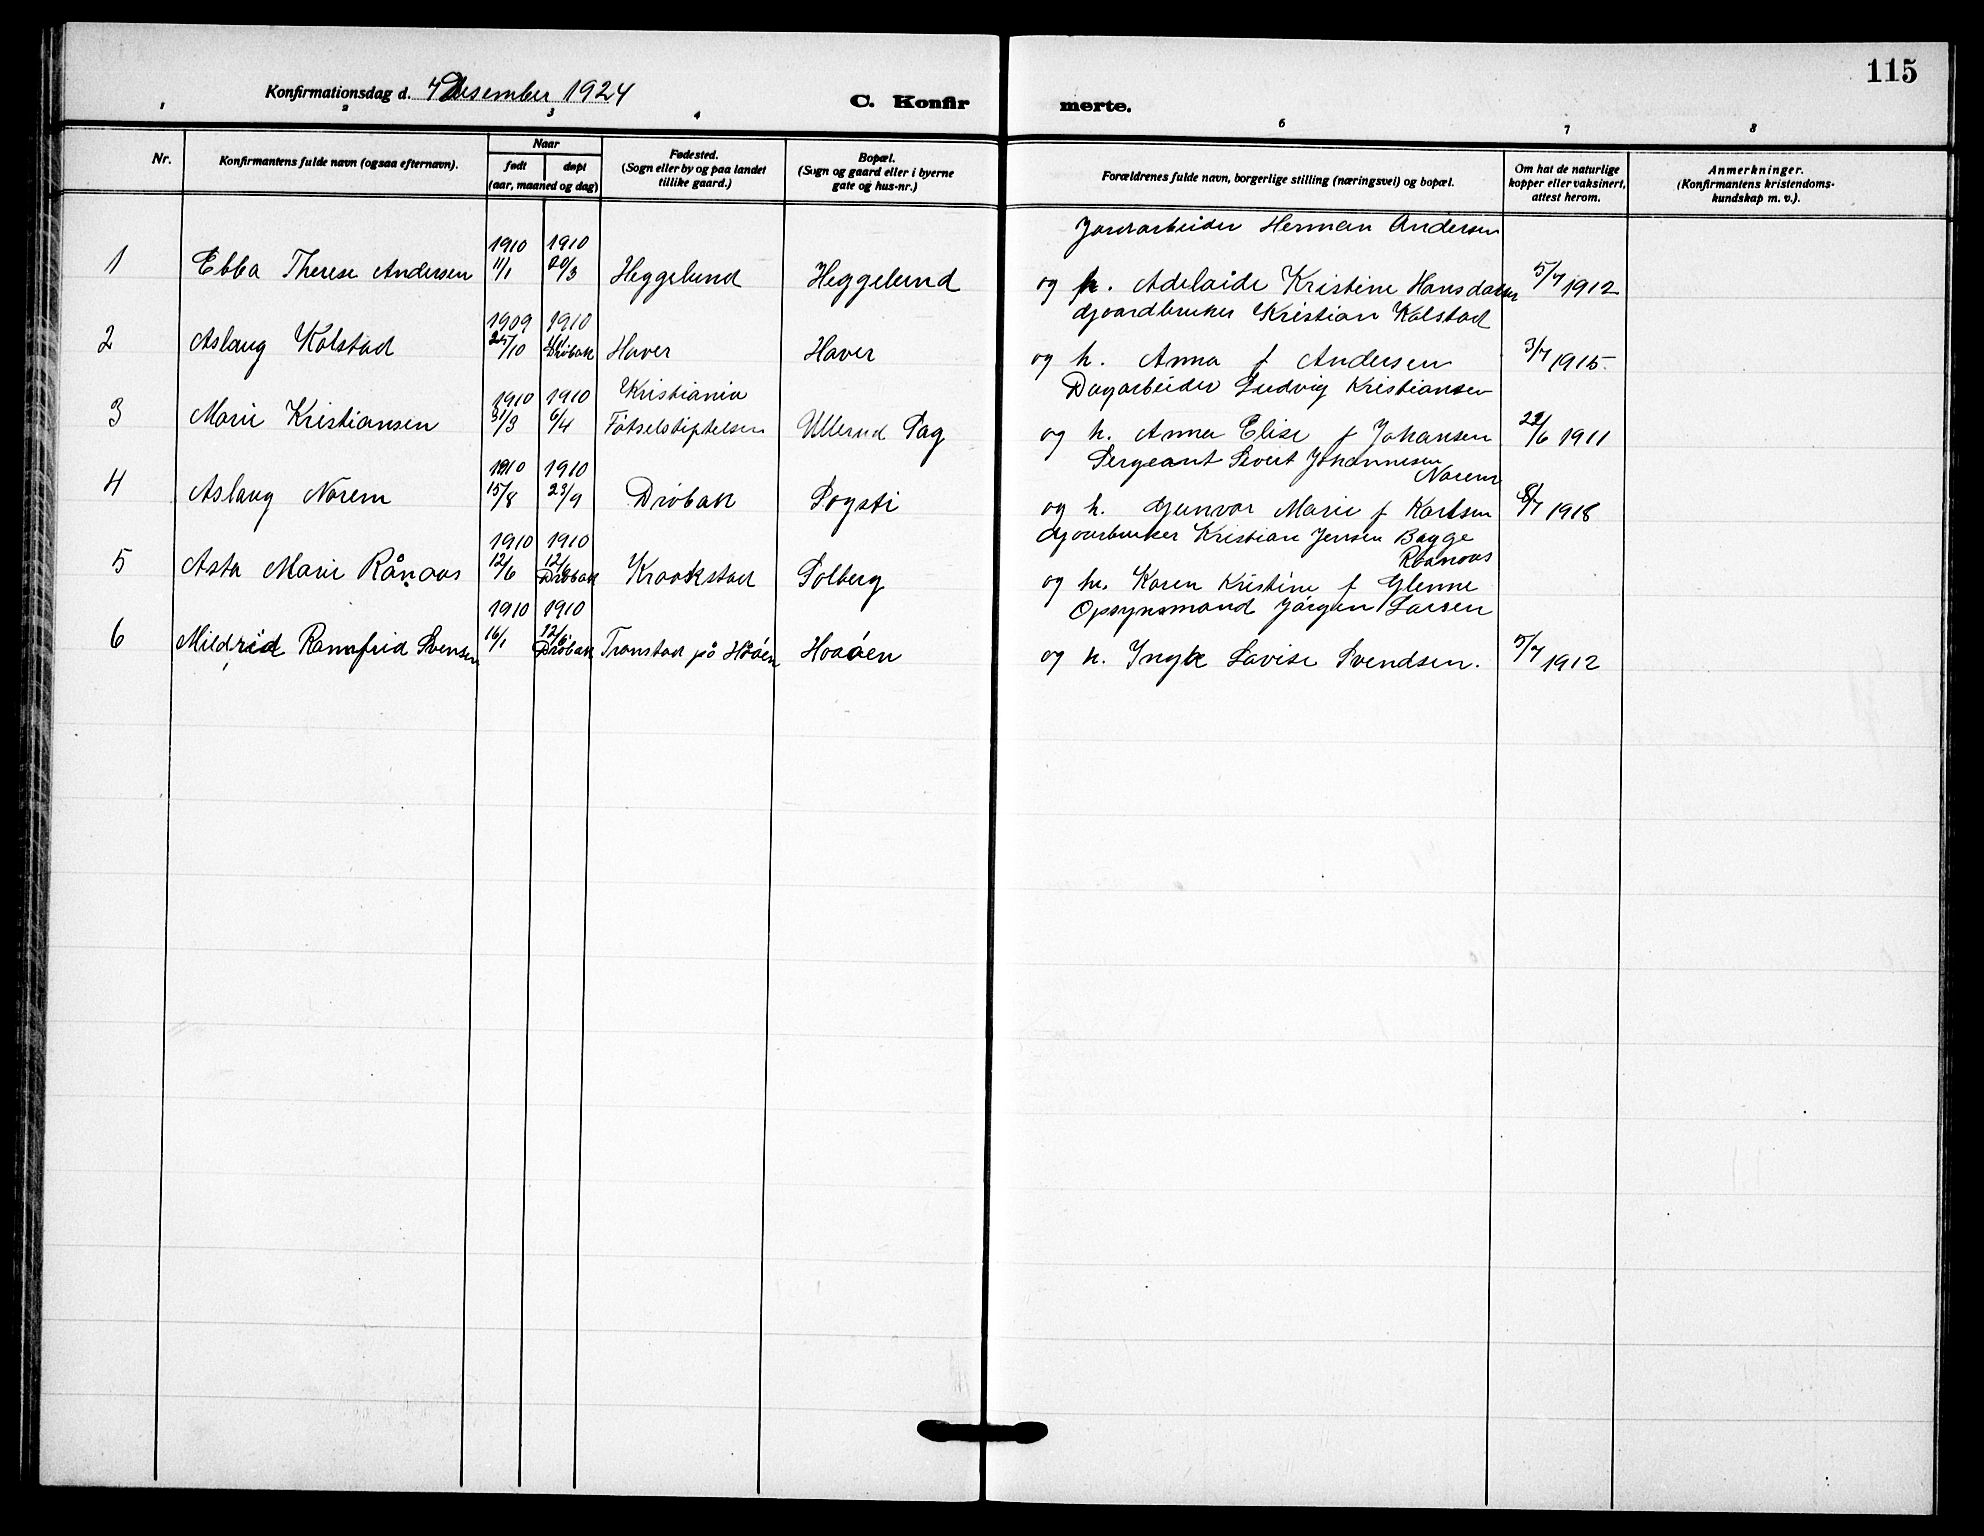 115
Konfirmationsdag d. 7 Desember 1924
C. Konfirmerte.
1 2 3 4 6 7 8
Nr.
Konfirmantens fulde navn (ogsaa efternavn).
Naar
født døpt
(aar, maaned og dag)
Fødested.
(Sogn eller by og paa landet
tillike gaard.)
Bopæl.
(Sogn og gaard eller i byerne
gate og hus-nr.)
Forældrenes fulde navn, borgerlige stilling (næringsvei) og bopæl.
Om hat de naturlige
kopper eller vaksinert,
attest herom.
Anmerkninger.
(Konfirmantens kristendoms-
kundskap m. v.).
Jordarbeider Herman Andersen
1910 1910
1 Ebba Therese Andersen 11/1 20/3 Heggelund Heggelund og h. Adelaide Kristine Hansdatter 5/7 1912
Gjaardbruker Kristian Kolstad
1909 1910
2 Aslaug Kolstad 25/10 Drøbak Haver Haver og h. Anna f Andersen 3/7 1915.
Dagarbeider Ludvig Kristiansen
1910 1910 Kristiania
3 Marie Kristiansen 31/3 6/4 Fötselstiptelsen Ullerud Sag og h. Anna Elise f Johansen 22/6 1911
Sergeant Sivert Johannesen
Norem
1910 1910
4 Aslaug Norem 15/8 23/9 Dröbak Sogsti og h. Gunvor Marie f Karlsen 8/7 1918
Gjaarbruker Kristian Jensen Bagge
Raanaas
1910 1910
5 Asta Marie Rånaas 12/6 12/6 Dröbak Kraakstad Solberg og h. Karen Kristine f Glenne
Opsynsmand Jörgen Larsen
1910 1910
6 Mildrid Ramfrid Svensen 16/1 12/6 Dröbak Tronstad på Håöen Haaöen og h. Yngve Lovise Svendsen. 5/7 1912